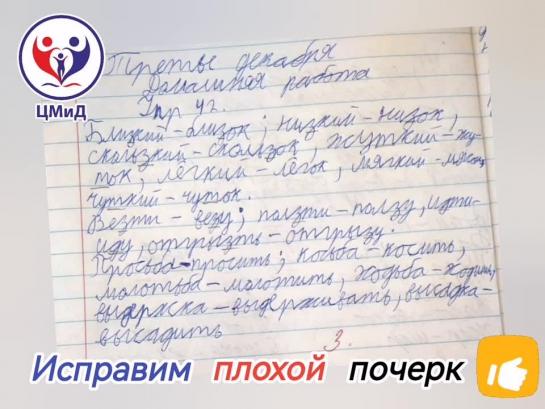 ЦМиД
Третье декабря
Домашняя работа
Упр 42.
Близкий - близок; низкий - низок,
скользкий - скользок, жуткий - жу-
ток, лёгкий - лёгок, мягкий - мягок,
чуткий - чуток.
Везти - везу; ползти - ползу, идти -
иду, отгрызть - отгрызу.
Просьба - просить; косьба - косить,
молотьба - молотить, ходьба - ходить,
выдержка - выдерживать, высадка -
высадить
3.
Исправим плохой почерк